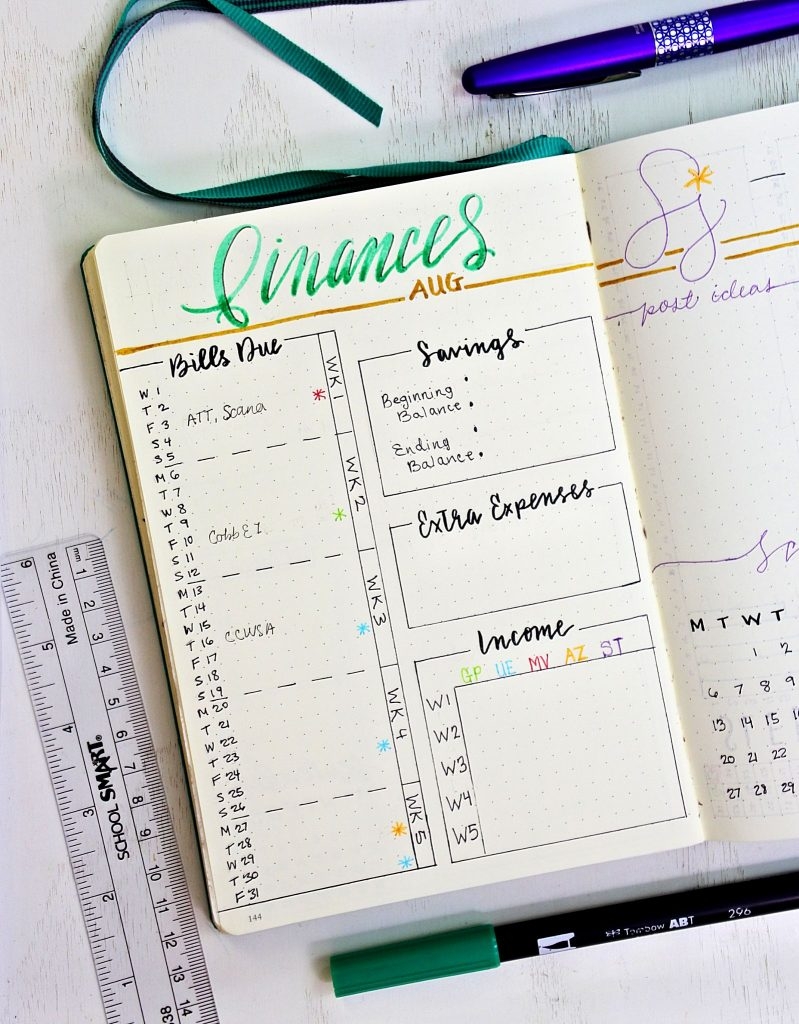 Finances
AUG
Bills Due
W 1
T 2
F 3 ATT, Scana
S 4
S 5
M 6
T 7
W 8
T 9
F 10 Cobb EI
S 11
S 12
M 13
T 14
W 15
T 16 CCWSA
F 17
S 18
S 19
M 20
T 21
W 22
T 23
F 24
S 25
S 26
M 27
T 28
W 29
T 30
F 31
WK 1
WK 2
WK 3
WK 4
WK 5
Savings
Beginning :
Balance
Ending :
Balance
Extra Expenses
Income
GP UE MV AZ ST
W1
W2
W3
W4
W5
144
post ideas
M T W T
1 2
6 7 8 9
13 14 15
20 21 22
27 28 29
Made in China
SCHOOL SMART®
mm 1 2 3 4 5 6 7 8 9 10 11 12 13 14
6 5 4 3 2 1
Tombow ABT 296